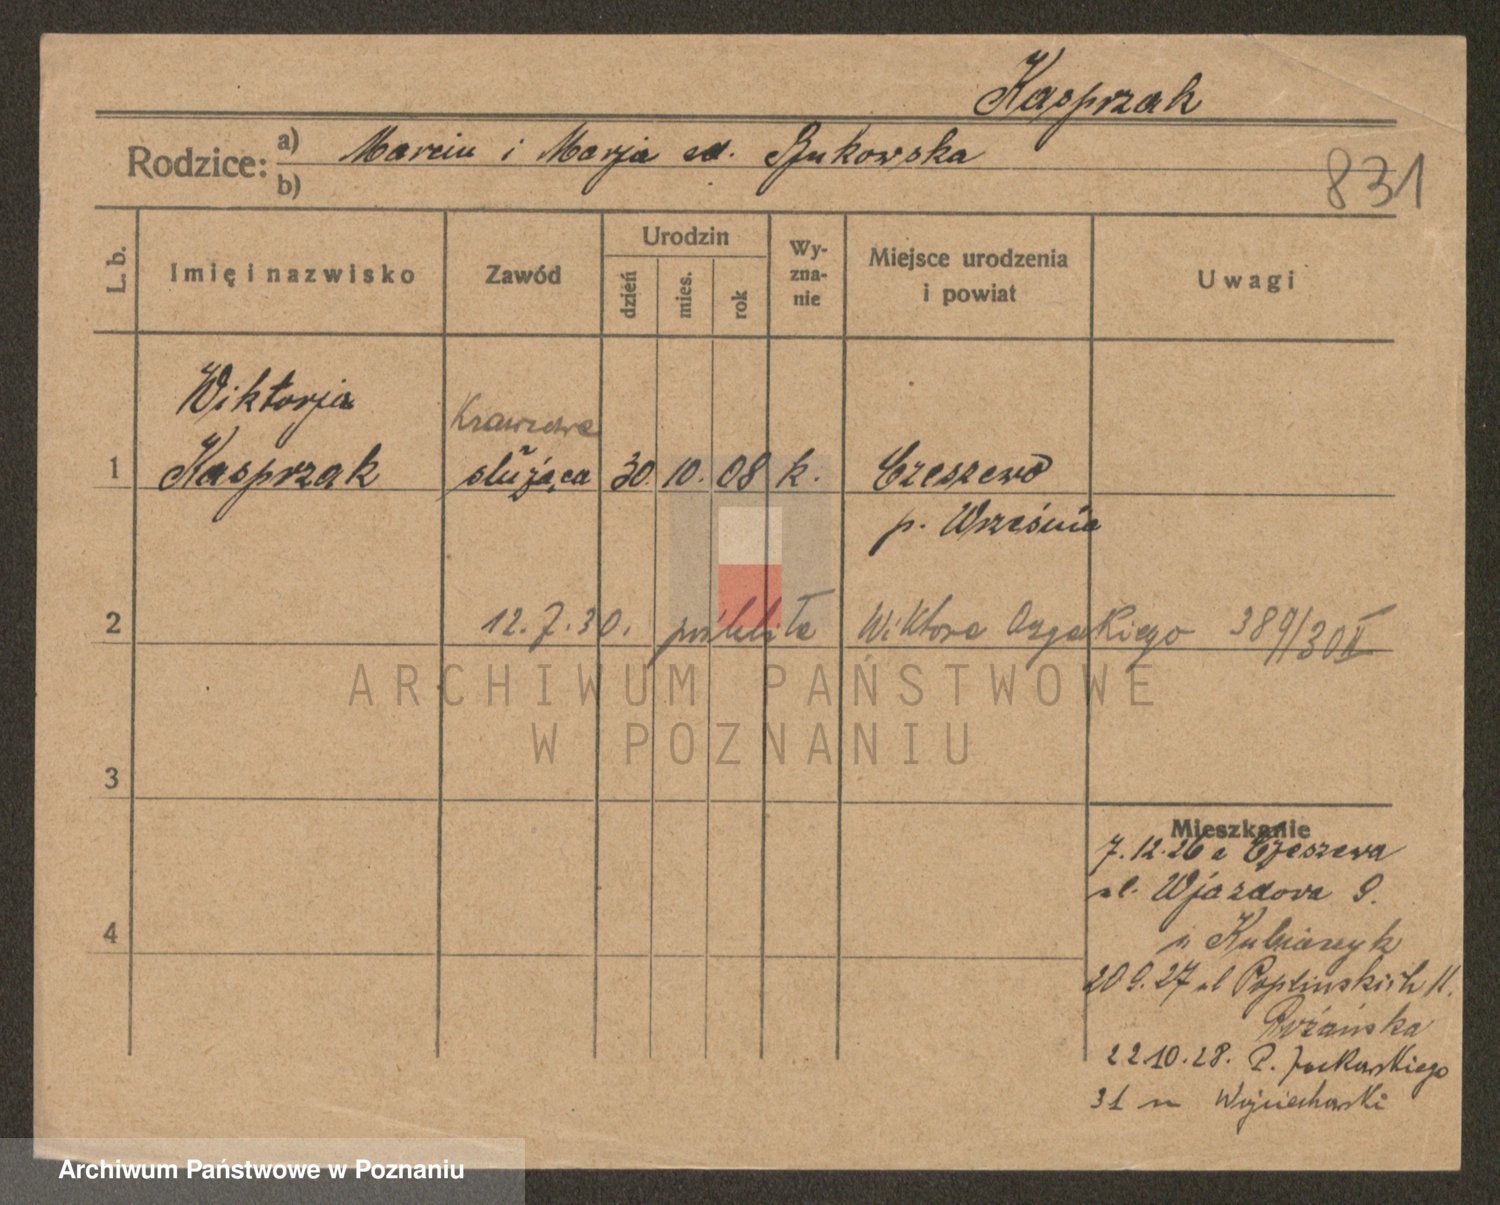 Kasprzak
Rodzice: a) Marcin i Marja zd. Bukowska
b)
831
L. b.
Imię i nazwisko
Zawód
Urodzin
dzień
mies.
rok
Wy-
zna-
nie
Miejsce urodzenia
i powiat
Uwagi
Wiktorja
Krawcowa
1 Kasprzak służąca 30. 10. 08 k. Czeszewo
p. Września
2 12.7.30. poślubiła Wiktora 389/30 II
ARCHIWUM PAŃSTWOWE
W POZNANIU
3
Mieszkanie
7.12.26 z Czeszewa
ul. Wjazdowa 9.
4
u Kubiaczyk
20 9.27 ul Poplińskich 11.
Różańska
22.10.28. P. Jackowskiego
31 u Wojciechowski
Archiwum Państwowe w Poznaniu